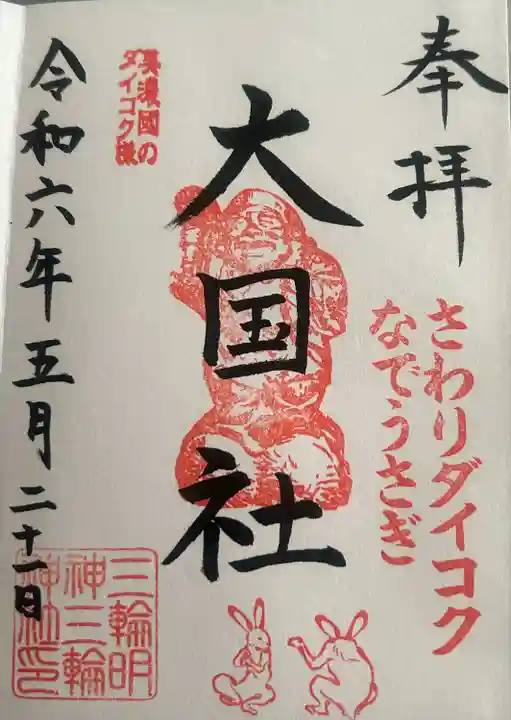 奉拝
さわりダイコク
なでうさぎ
大国社
美濃國の
ダイコク様
令和六年五月二十一日
三輪明
神三輪
神社印